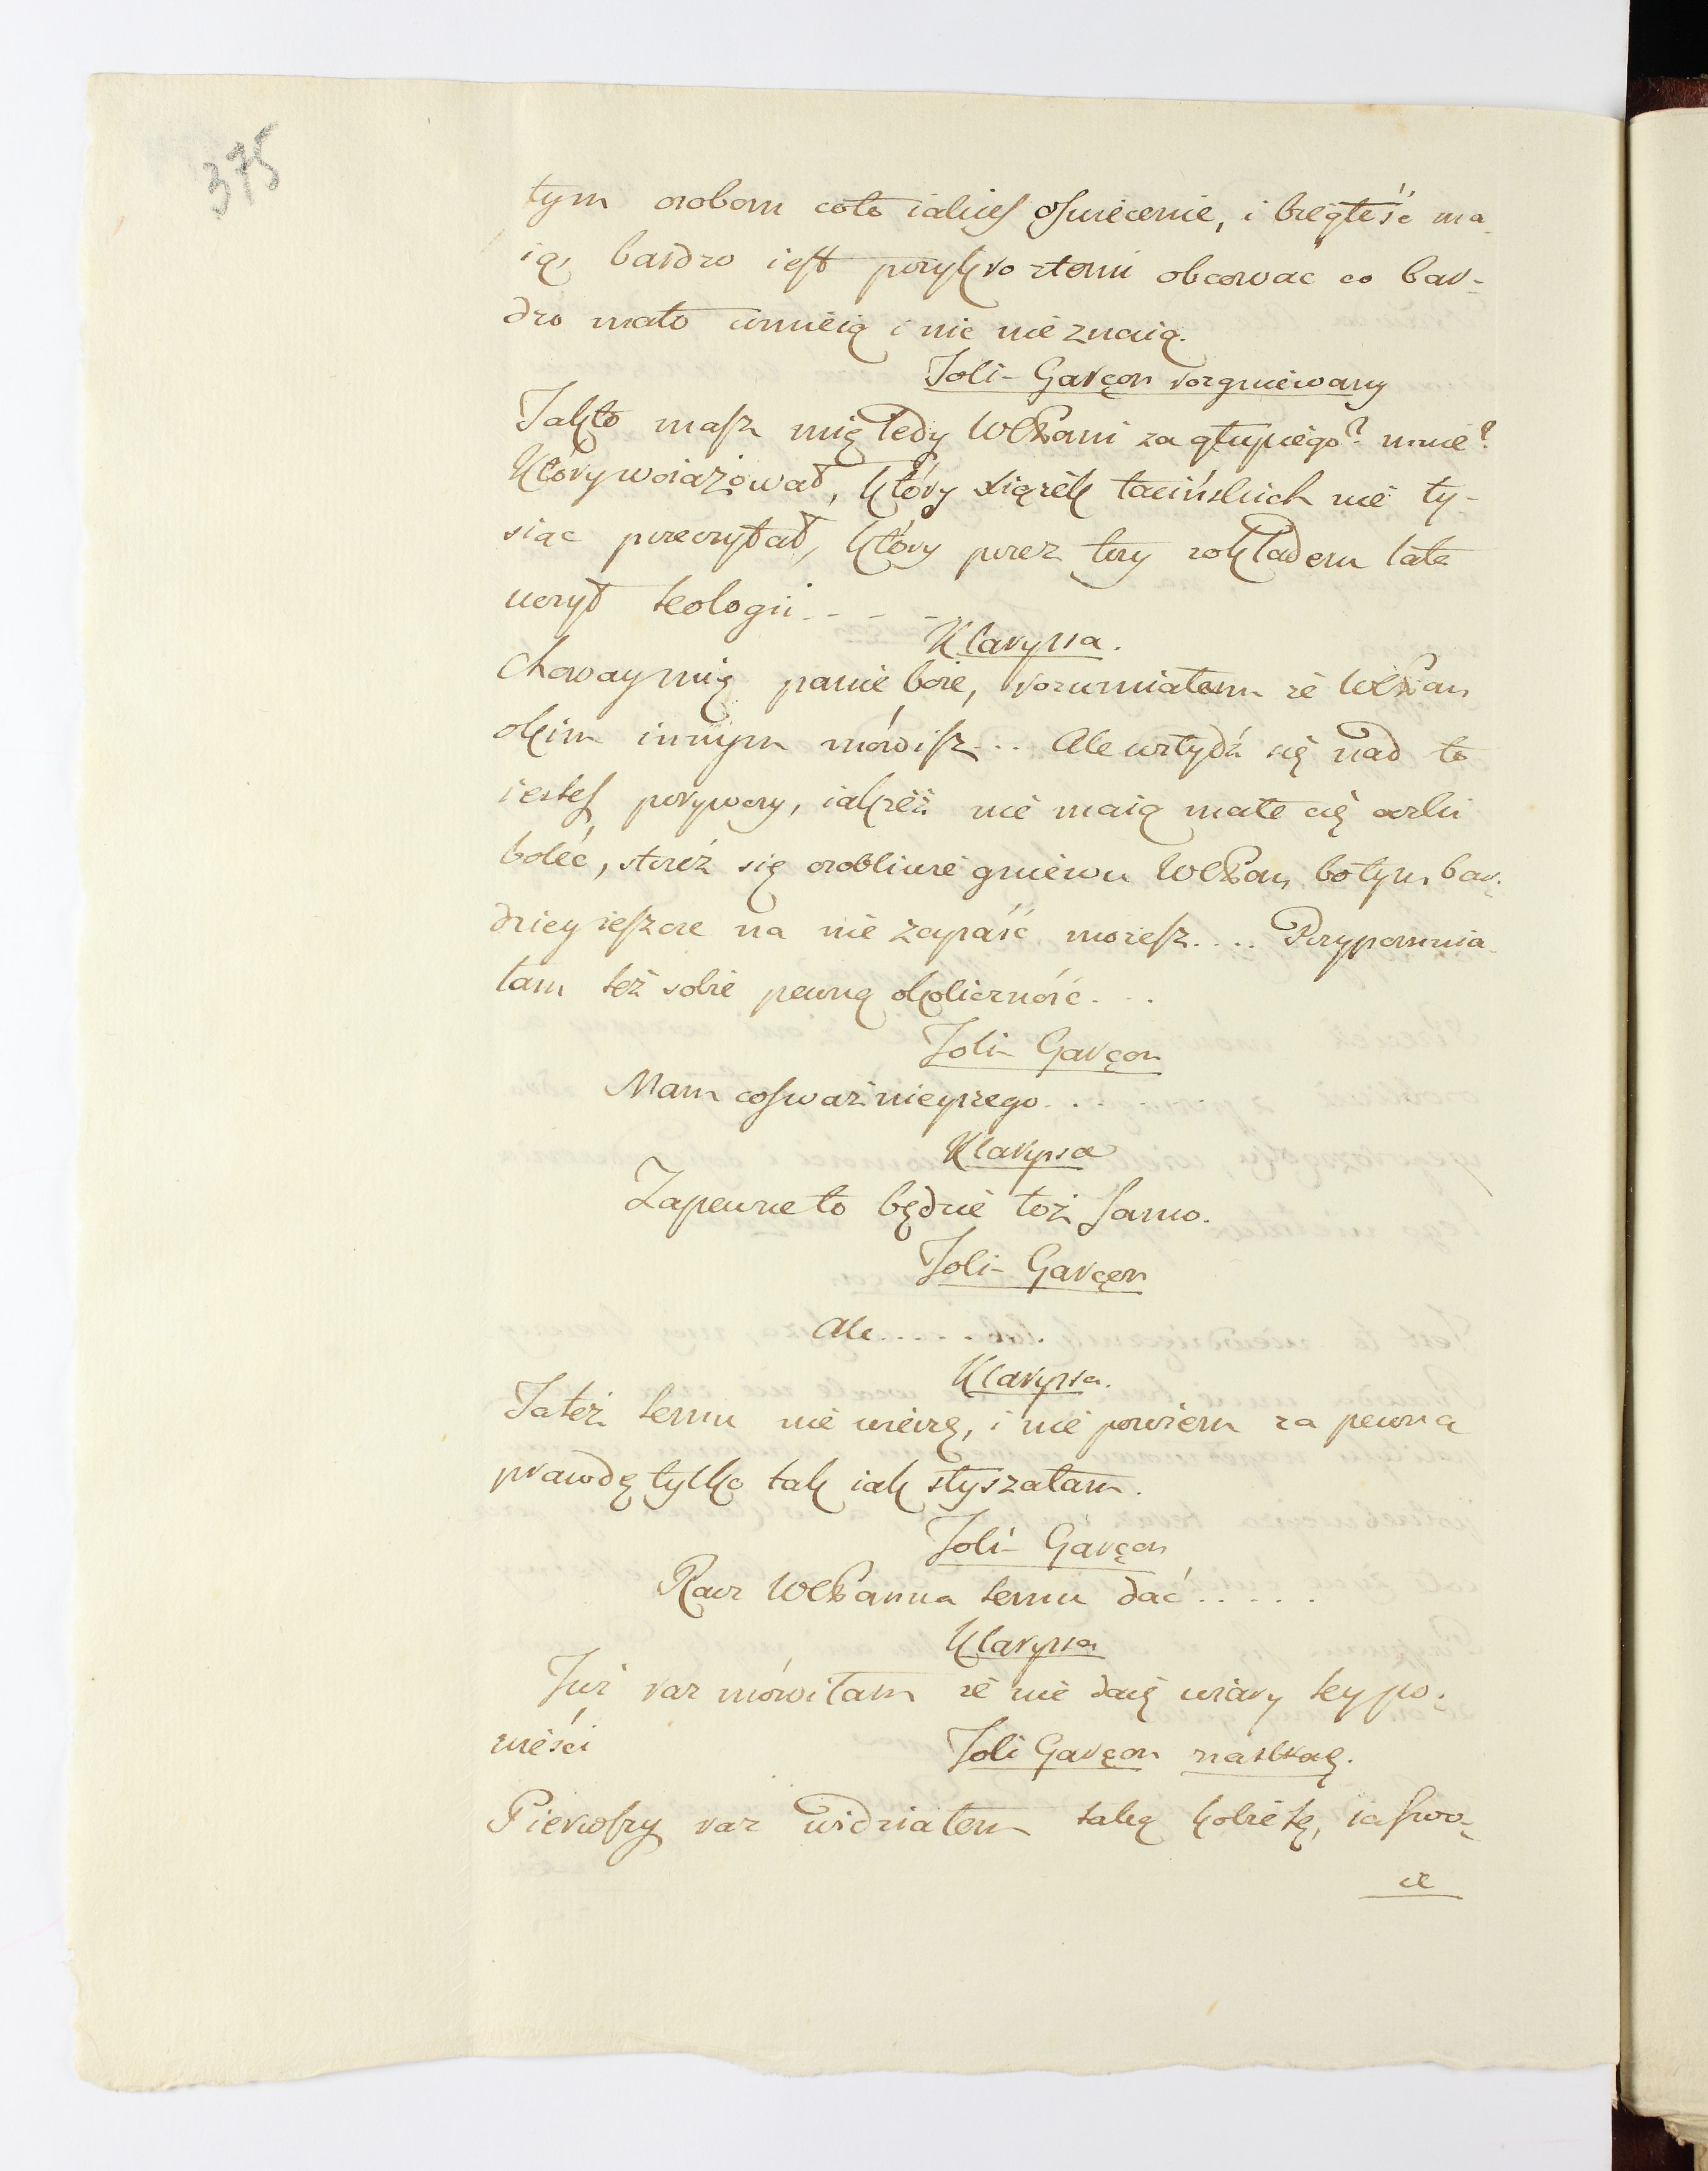 375
tym osobom coto iakieś oświecenie, i biegłość ma-
ią, bardzo iest przykro ztemi obcować co bar-
dzo mało umieią i nic nie znaią.
Joli-Garçon rozgniewany
Jakto masz mię tedy WCPani za głupiego? mnie?
który woiażował, który xiążek łacińskich nie ty-
siąc przeczytał, który przez trzy zokładem lata
uczył teologii - - - -
Klaryssa.
Choway mię panie boże, rozumiałam że WCPan
okim innym mówisz... Ale wstydź się nad to
iesteś porywczy, iakżeż nie maią małe cię oczki
boleć, strzeż się osobliwie gniewu WCPan, bo tym bar-
dziey ieszcze na nie zapaść możesz.... Przypomnia-
łam też sobie pewną okoliczność...
Joli-Garçon
Mam coś ważnieyszego......
Klaryssa
Zapewne to będzie toż samo.
Joli-Garçon
Ale.......
Klaryssa.
Jateż temu nie wierzę, i nie powiem za pewną
prawdę tylko tak iak słyszałam.
Joli-Garçon
Racz WCPanna temu dać.....
Klaryssa
Już raz mówiłam że nie daię wiary tey po-
wieści
Joli Garçon na stronę.
Pierwszy raz widziałem taką kobietę, ia swo-
ie